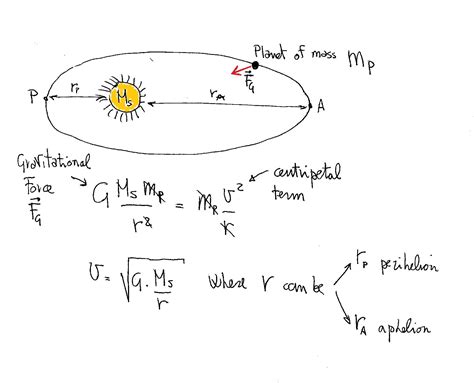 Planet of mass m_P
F_G
P r_P M_S r_A A
Gravitational
Force
F_G
G M_S m_P / r² = m_P v² / r
centripetal
term
v = √(G · M_S / r) where r can be
r_P perihelion
r_A aphelion